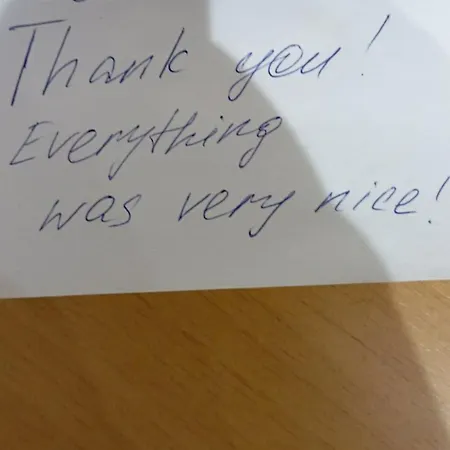 Thank you!
Everything
was very nice!